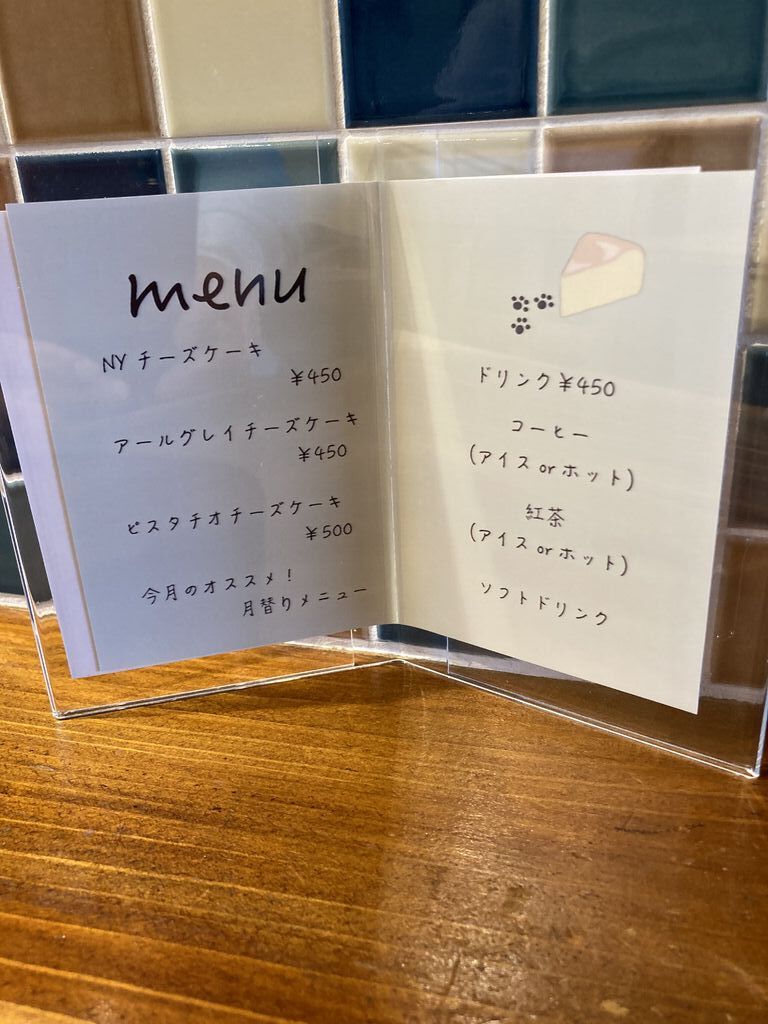 menu
NY チーズケーキ
¥450
アールグレイチーズケーキ
¥450
ピスタチオチーズケーキ
¥500
今月のオススメ!
月替りメニュー
ドリンク¥450
コーヒー
(アイス or ホット)
紅茶
(アイス or ホット)
ソフトドリンク